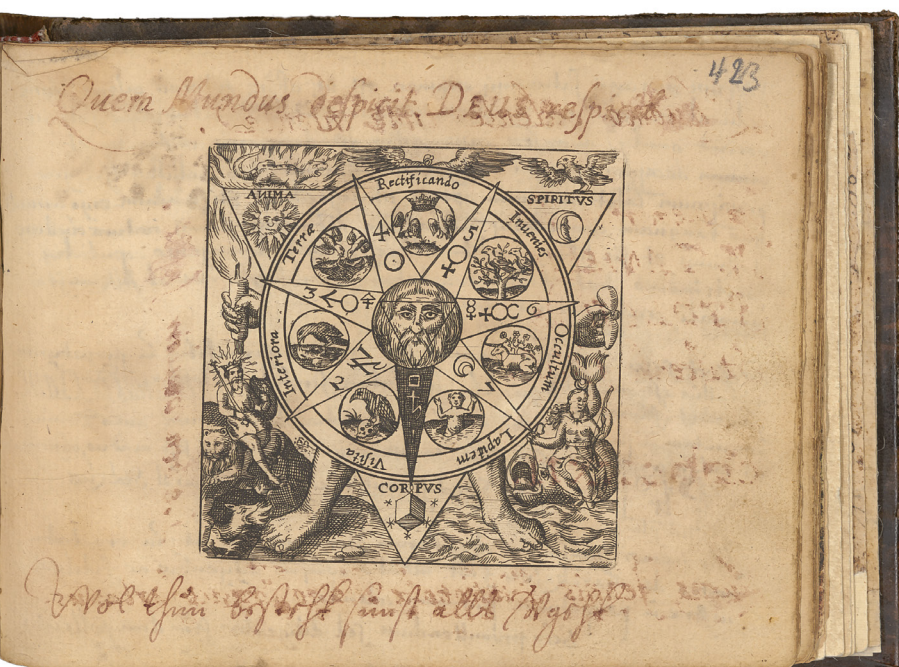 423
Quem Mundus despicit, DEUS respicit
ANIMA
SPIRITVS
Visita
Interiora
Terræ
Rectificando
Invenies
Occultum
Lapidem
4
5
3
6
2
CORPVS
Wol thun besteht sunst alles